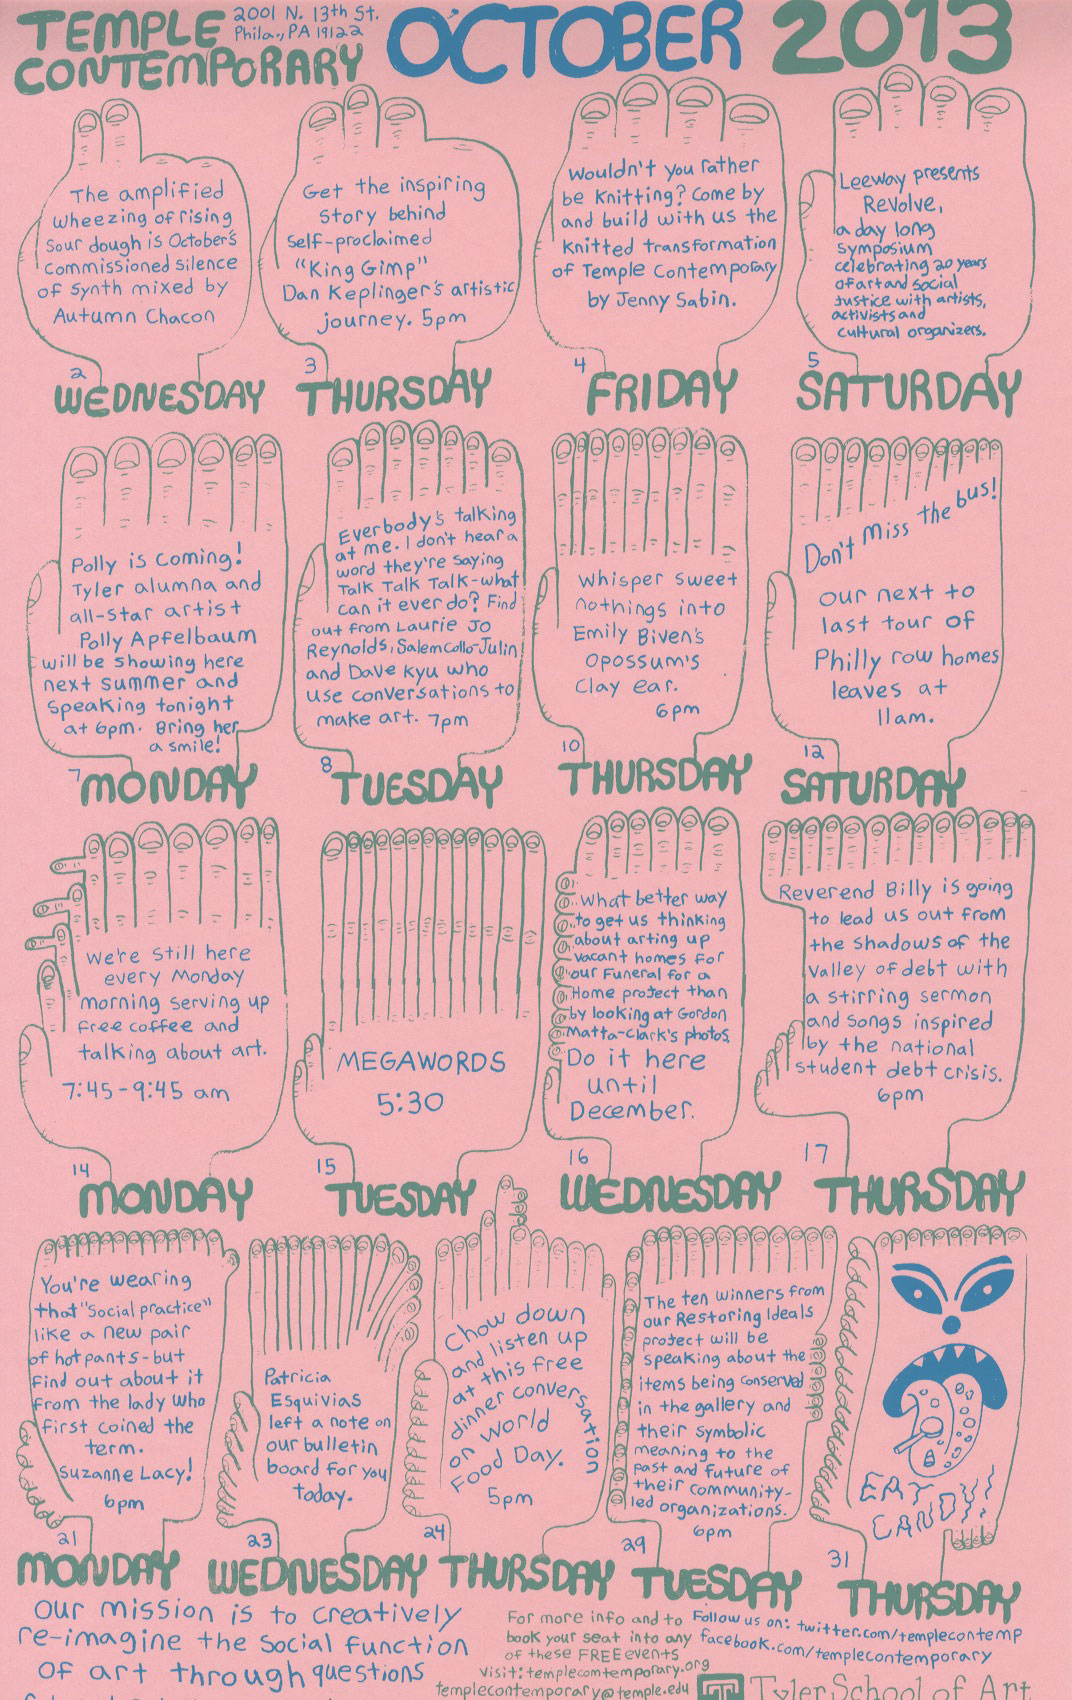 TEMPLE CONTEMPORARY
2001 N. 13th St.
Phila., PA 19122
OCTOBER 2013
The amplified
wheezing of rising
sour dough is October's
commissioned silence
of synth mixed by
Autumn Chacon
2
WEDNESDAY
Get the inspiring
story behind
self-proclaimed
"King Gimp"
Dan Keplinger's artistic
journey. 5pm
3
THURSDAY
Wouldn't you rather
be knitting? Come by
and build with us the
knitted transformation
of Temple Contemporary
by Jenny Sabin.
4
FRIDAY
Leeway presents
Revolve,
a day long
symposium
celebrating 20 years
of art and social
justice with artists,
activists and
cultural organizers.
5
SATURDAY
Polly is coming!
Tyler alumna and
all-star artist
Polly Apfelbaum
will be showing here
next summer and
speaking tonight
at 6pm. Bring her
a smile!
7
MONDAY
Everbody's talking
at me. I don't hear a
word they're saying
Talk Talk Talk-what
can it ever do? Find
out from Laurie Jo
Reynolds, Salem Collo-Julin
and Dave Kyu who
use conversations to
make art. 7pm
8
TUESDAY
Whisper sweet
nothings into
Emily Biven's
opossum's
clay ear.
6pm
10
THURSDAY
Don't miss the bus!
our next to
last tour of
Philly row homes
leaves at
11am.
12
SATURDAY
We're still here
every Monday
morning serving up
free coffee and
talking about art.
7:45-9:45 am
14
MONDAY
MEGAWORDS
5:30
15
TUESDAY
What better way
to get us thinking
about arting up
vacant homes for
our Funeral for a
Home project than
by looking at Gordon
Matta-Clark's photos.
Do it here
until
December.
16
WEDNESDAY
Reverend Billy is going
to lead us out from
the shadows of the
valley of debt with
a stirring sermon
and songs inspired
by the national
student debt crisis.
6pm
17
THURSDAY
You're wearing
that "Social practice"
like a new pair
of hot pants-but
find out about it
from the lady who
first coined the
term.
Suzanne Lacy!
6pm
21
MONDAY
Patricia
Esquivias
left a note on
our bulletin
board for you
today.
23
WEDNESDAY
Chow down
and listen up
at this free
dinner conversation
on World
Food Day.
5pm
24
THURSDAY
The ten winners from
our Restoring Ideals
project will be
speaking about the
items being conserved
in the gallery and
their symbolic
meaning to the
past and future of
their community-
led organizations.
6pm
29
TUESDAY
EAT
CANDY!
31
THURSDAY
Our mission is to creatively
re-imagine the social function
of art through questions
For more info and to
book your seat into any
of these FREE events
visit: templecomtemporary.org
templecontemporary@temple.edu
Follow us on: twitter.com/templecontemp
facebook.com/templecontemporary
Tyler School of Art